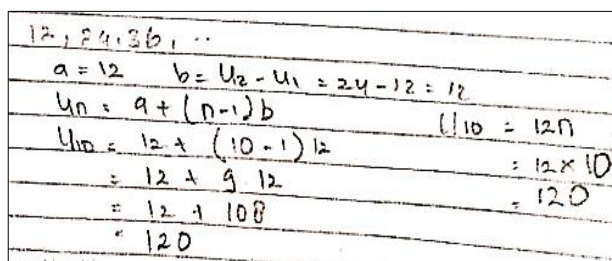 12, 24, 36, ..
a = 12 b = U2 - U1 = 24 - 12 = 12
Un = a + (n-1)b
U10 = 12 + (10-1)12
= 12 + 9.12
= 12 + 108
= 120
U10 = 12n
= 12 x 10
= 120